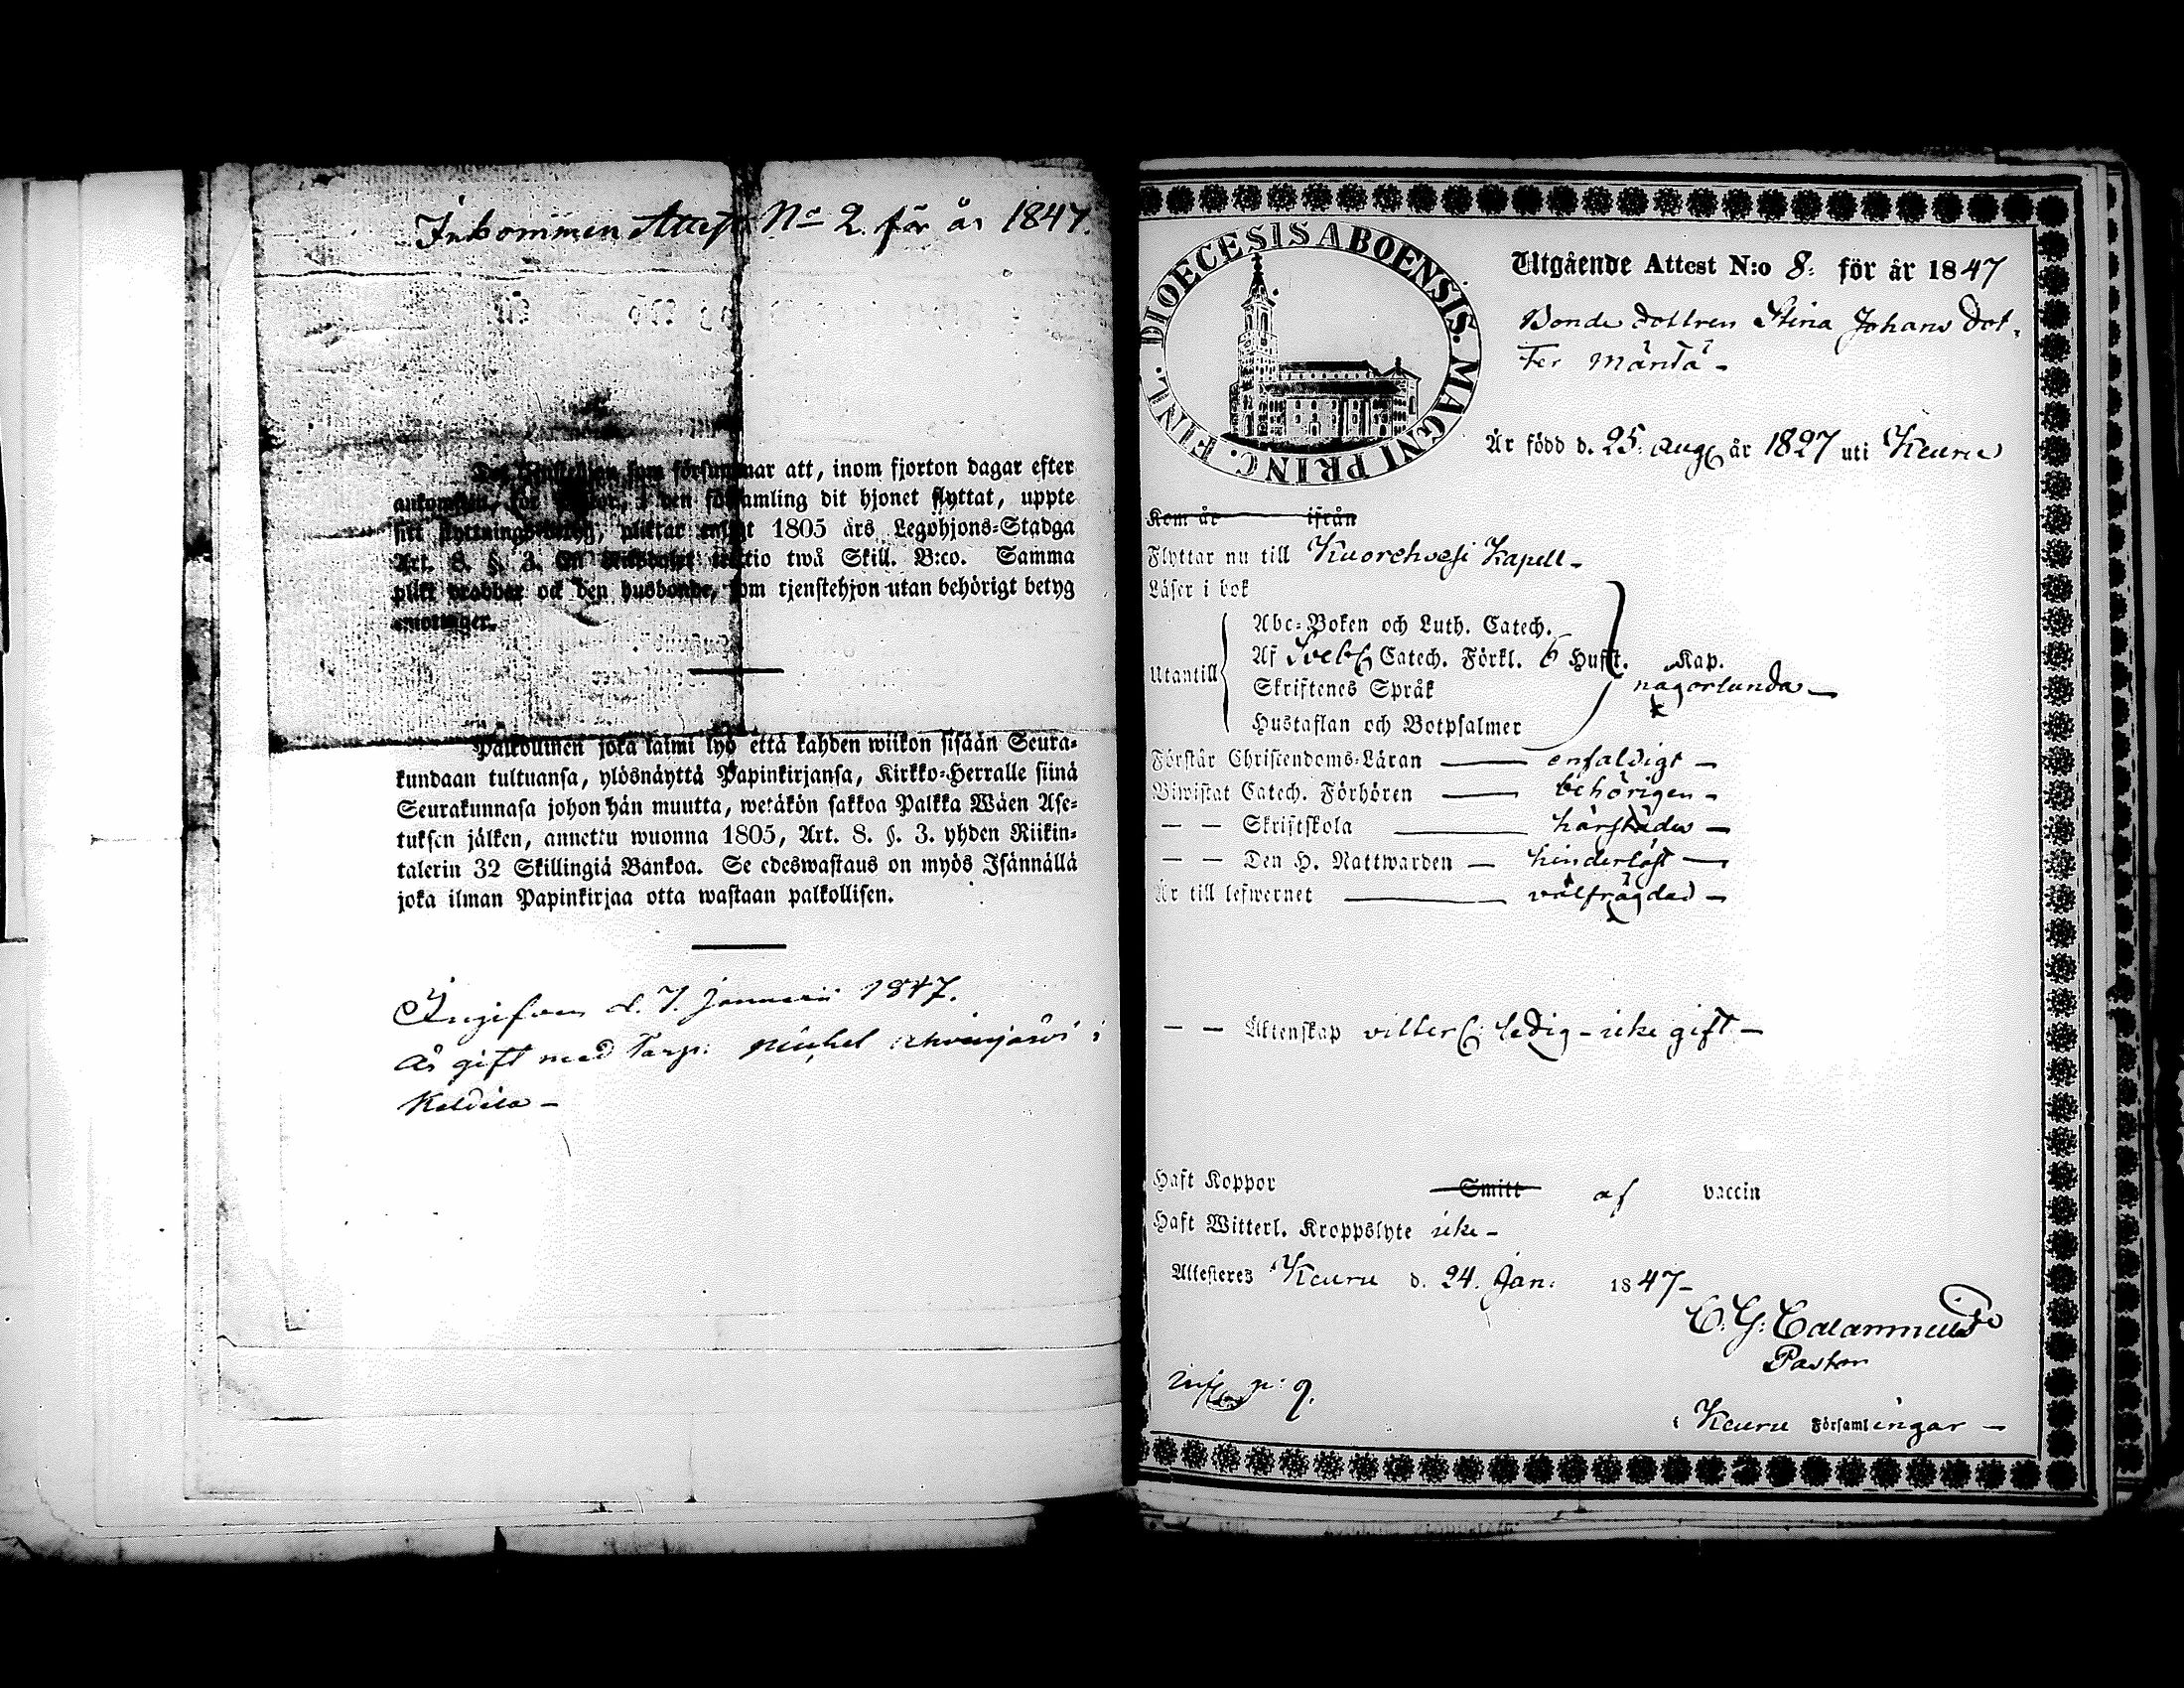 Inkommen Attest No 2. för år 1847.
som försummar att, inom fjorton dagar efter
ankomsten, för i den församling dit hjonet flyttat, uppte
sitt flyttnings-betyg, pliktar enligt 1805 års Legohjons-Stadga
Art. 8. §. 3. En Riksdaler trettio twå Skill. B:co. Samma
plikt drabbar ock den husbonde, som tjenstehjon utan behörigt betyg
emottager.
Palkollinen joka laimi lyö että kahden wiikon sisään Seura-
kundaan tultuansa, ylösnäyttä Papinkirjansa, Kirkko-Herralle siinä
Seurakunnasa johon hän muutta, wetäkön sakkoa Palkka Wäen Ase-
tuksen jälken, annettu wuonna 1805, Art. 8. §. 3. yhden Riikin-
talerin 32 Skillingiä Bankoa. Se edeswastaus on myös Isännällä
joka ilman Papinkirjaa otta wastaan palkollisen.
Ingifven d. 7. Januarii 1847.
Är gift med Torp: Michel i
DIOECESIS ABOENSIS. MAGNI PRINC. FINL.
Utgående Attest N:o 8: för år 1847
Bonde dottren Stina Johans dot-
ter Mäntä -
Är född d. 25. Aug. år 1827 uti Keuru
Kom år ifrån
Flyttar nu till Kuorehvesi Kapell -
Läser i bok
Abc-Boken och Luth. Catech.
Utantill Af Sveb. Catech. Förkl. 6 Hufst. Kap.
Skriftenes Språk någorlunda -
Hustaflan och Botpsalmer
Förstår Christendoms-Läran — enfaldigt -
Biwistat Catech. Förhören — behörigen -
— — Skriftskola — härstädes -
— — Den H. Nattwarden — hinderlöst -
Är till lefwernet — välfrägdad -
— — Äktenskap vitterl. ledig - icke gift -
Haft Koppor Smitt af vaccin
Haft Witterl. Kroppslyte icke -
Attesteres Keuru d. 24. Jan: 1847 -
C. G. Calamnius
Pastor
p: 9.
i Keuru Församlingar -